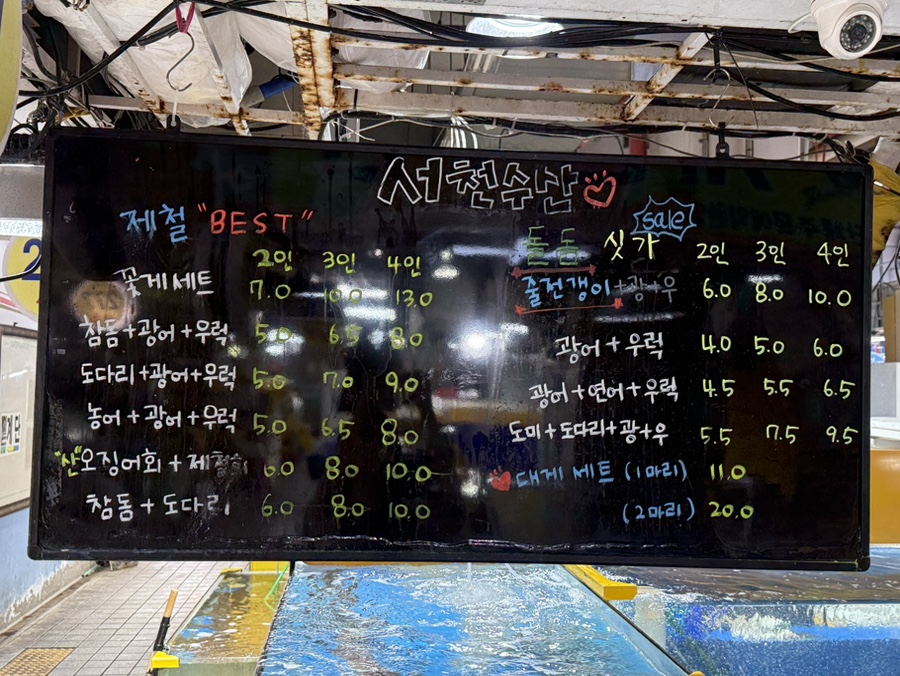 서천수산
제철 "BEST"
2인 3인 4인
꽃게세트 7.0 10.0 13.0
참돔+광어+우럭 5.0 6.5 8.0
도다리+광어+우럭 5.0 7.0 9.0
농어+광어+우럭 5.0 6.5 8.0
"산"오징어회+제철회 6.0 8.0 10.0
참돔+도다리 6.0 8.0 10.0
sale
돌돔 싯가 2인 3인 4인
줄전갱이+광+우 6.0 8.0 10.0
광어+우럭 4.0 5.0 6.0
광어+연어+우럭 4.5 5.5 6.5
도미+도다리+광+우 5.5 7.5 9.5
대게 세트 (1마리) 11.0
(2마리) 20.0
2